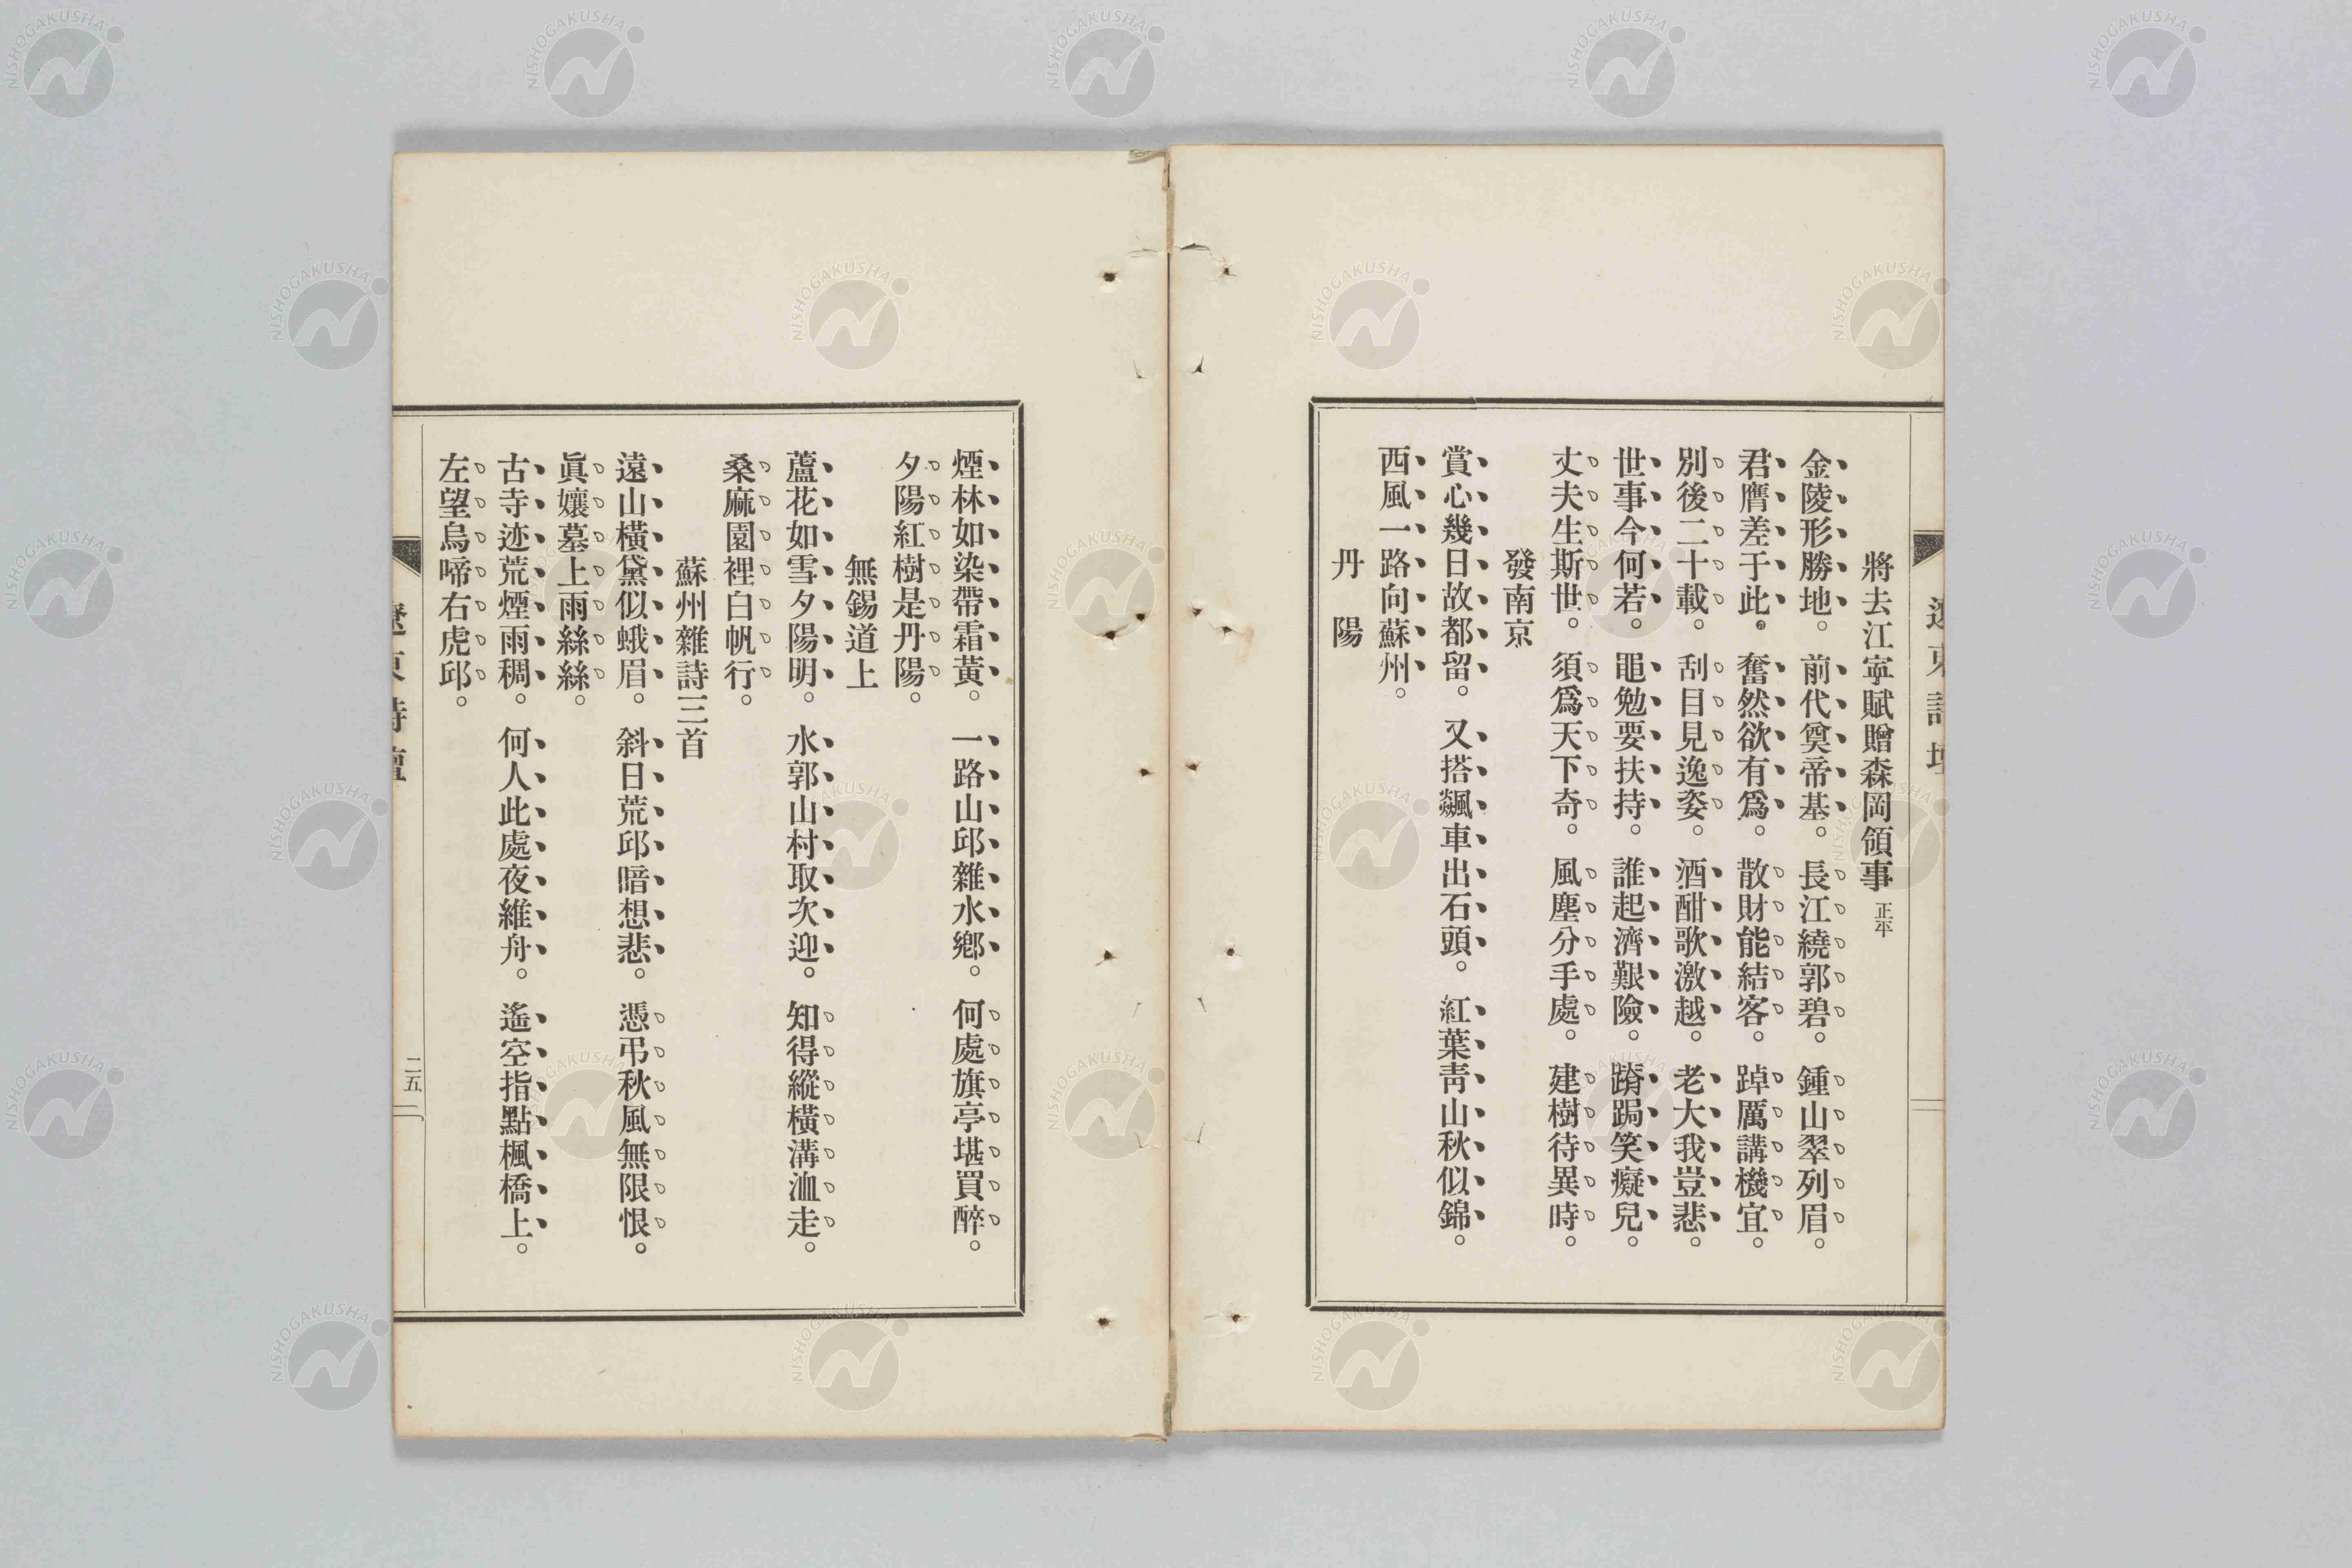 將去江寧賦贈森岡領事 正平
金陵形勝地。前代奠帝基。長江繞郭碧。鍾山翠列眉。
君膺差于此。奮然欲有爲。散財能結客。踔厲講機宜。
別後二十載。刮目見逸姿。酒酣歌激越。老大我豈悲。
世事今何若。黽勉要扶持。誰起濟艱險。蹐跼笑癡兒。
丈夫生斯世。須爲天下奇。風塵分手處。建樹待異時。
發南京
賞心幾日故都留。又搭飆車出石頭。紅葉靑山秋似錦。
西風一路向蘇州。
丹陽
煙林如染帶霜黃。一路山邱雜水鄕。何處旗亭堪買醉。
夕陽紅樹是丹陽。
無錫道上
蘆花如雪夕陽明。水郭山村取次迎。知得縱橫溝洫走。
桑麻園裡白帆行。
蘇州雜詩三首
遠山橫黛似蛾眉。斜日荒邱暗想悲。憑弔秋風無限恨。
眞孃墓上雨絲絲。
古寺迹荒煙雨稠。何人此處夜維舟。遙空指點楓橋上。
左望烏啼右虎邱。
遼東詩壇
二五
NISHOGAKUSHA